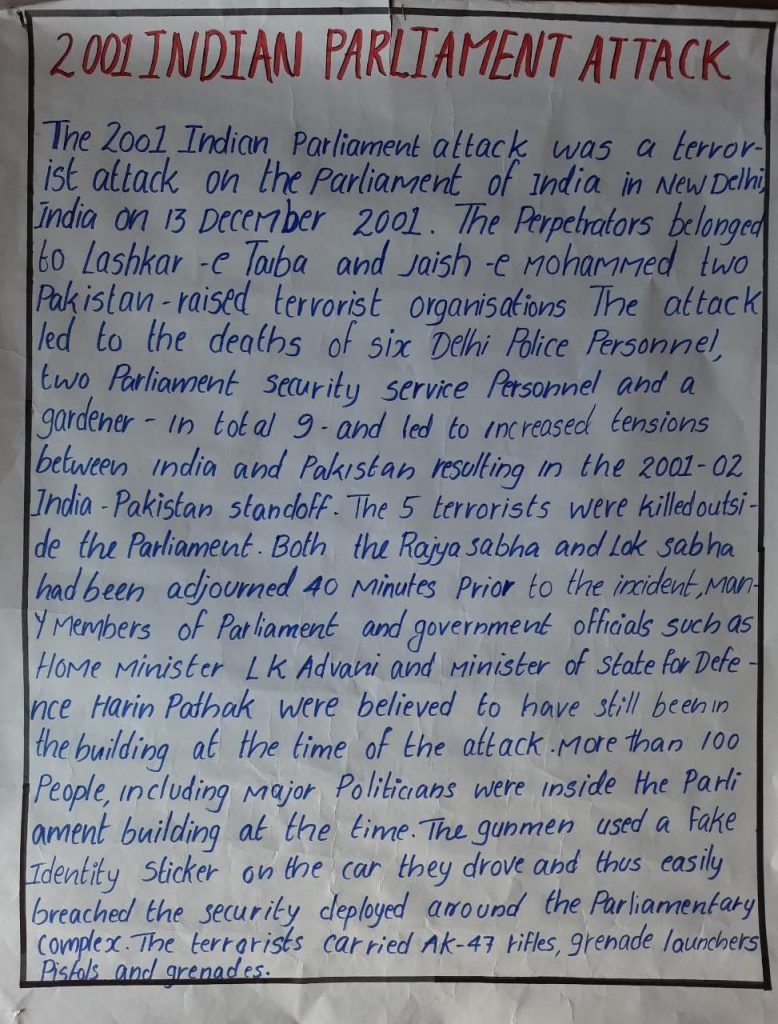 2001 INDIAN PARLIAMENT ATTACK
The 2001 Indian Parliament attack was a terror-
ist attack on the Parliament of India in New Delhi,
India on 13 December 2001. The Perpetrators belonged
to Lashkar-e Taiba and Jaish-e Mohammed two
Pakistan-raised terrorist organisations The attack
led to the deaths of six Delhi Police Personnel,
two Parliament security service Personnel and a
gardener - in total 9 - and led to increased tensions
between india and Pakistan resulting in the 2001-02
India-Pakistan standoff. The 5 terrorists were killed outsi-
de the Parliament. Both the Rajya sabha and Lok sabha
had been adjourned 40 Minutes Prior to the incident, Man-
y Members of Parliament and government officials such as
Home Minister LK Advani and Minister of State for Defe-
nce Harin Pathak were believed to have still been in
the building at the time of the attack. More than 100
People, including Major Politicians were inside the Parli
ament building at the time. The gunmen used a Fake
Identity Sticker on the car they drove and thus easily
breached the security deployed around the Parliamentary
complex. The terrorists carried AK-47 rifles, grenade launchers
Pistols and grenades.